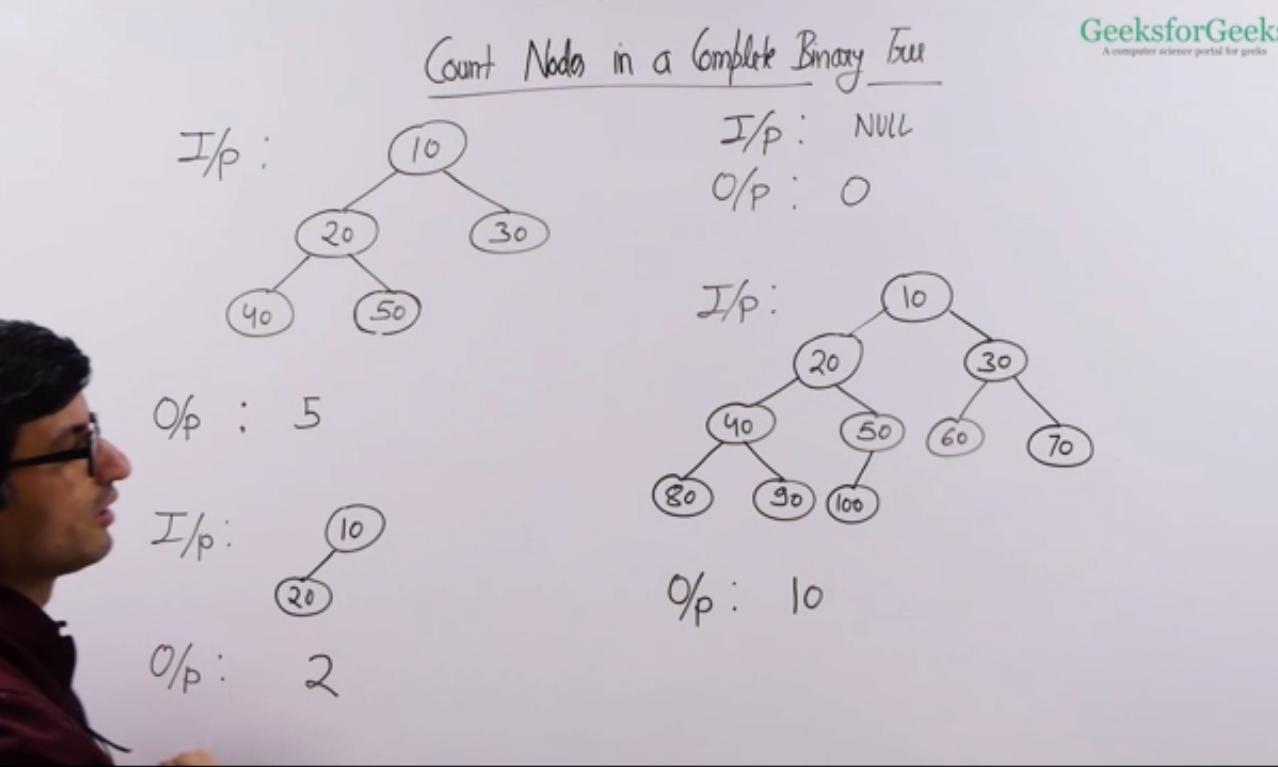 GeeksforGeeks
A computer science portal for geeks
Count Nodes in a Complete Binary Tree
I/p :
10
20 30
40 50
O/p : 5
I/p :
10
20
O/p : 2
I/p : NULL
O/p : 0
I/p :
10
20 30
40 50 60 70
80 90 100
O/p : 10